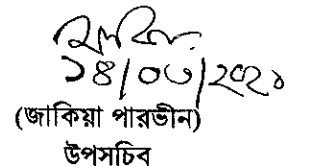 ১৪/০৩/২০২১
(জাকিয়া পারভীন)
উপসচিব